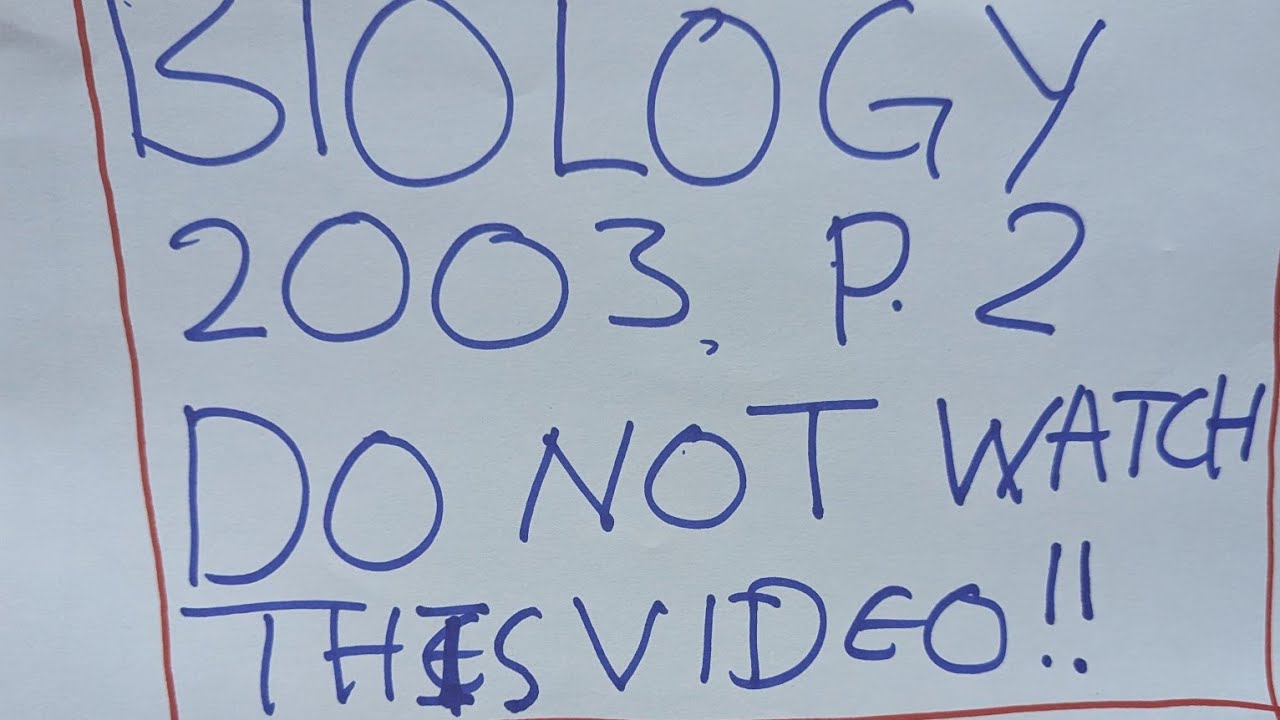 BIOLOGY
2003, P. 2
DO NOT WATCH
THIS VIDEO!!